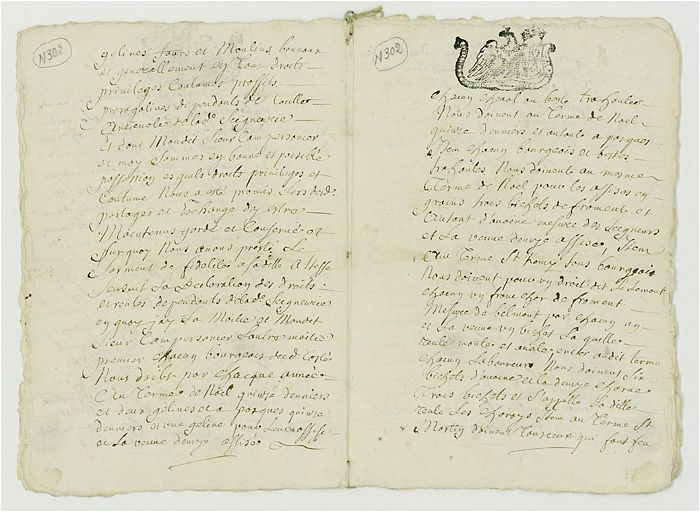 N 302
gelines fours et Moulins bannaux
et generallement en tous droits
privileges Coutumes proffits
prerogatives dependants de
Anciennetés de lad Seigneurie
Et dont Mondit sieur Compersonier
et moy sommes en bonne et paisible
possession esquels droits privileges et
Coutume Nous a esté promis lors desd
partages et Echange dy estre
Maintenus gardé et Conservés et
surquoy Nous avons presté Le
serment de fidelité a
sensuit La declaration des droits
et rentes dependants de lad Seigneurie
en quoy jay La Moitié et Mondit
sieur Compersonier Lautre moitié
premier chacun bourgeois
Nous doibt par chacque année
Au Terme de Noël quinze denniers
et deux gelines et a pasques quinze
denniers et une geline pour
et La veuve demye assise
N 302
chacun cheval ou beste trahante
Nous doivent au Terme de Noel
quinze denniers et autant a pasques
Item chacun bourgeois et bestes
trahantes Nous doivent au mesme
Terme de Noël pour les assises en
grains trois bichets de froment et
autant d'avoine mesure des Seigneurs
et La veuve demye assise Item
Au Terme St tous bourgeois
Nous doivent pour un droit dit
chacun un franchar de froment
Mesure de belmont par chacun an
et La veuve un bichet La quelle
rente monte et audit terme
chacun Laboureur Nous doivent six
bichets d'avoine et La demye charue
trois bichets et s'appelle La ditte
rente Les Item au Terme St
Martin doivent Tousceux qui font feu